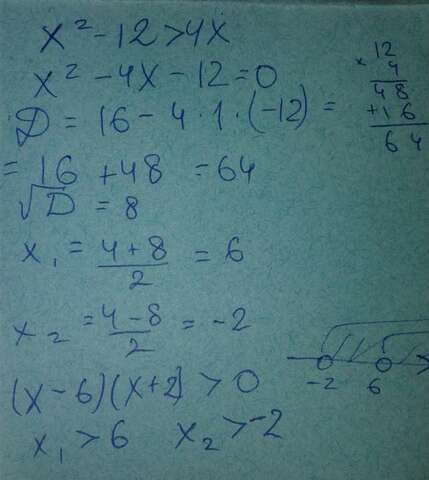 x² - 12 > 4x
x² - 4x - 12 = 0
D = 16 - 4 · 1 · (-12) =
= 16 + 48 = 64
√D = 8
x₁ = (4 + 8)/2 = 6
x₂ = (4 - 8)/2 = -2
(x - 6)(x + 2) > 0
x₁ > 6 x₂ > -2
12
× 4
48
+16
64
-2 6